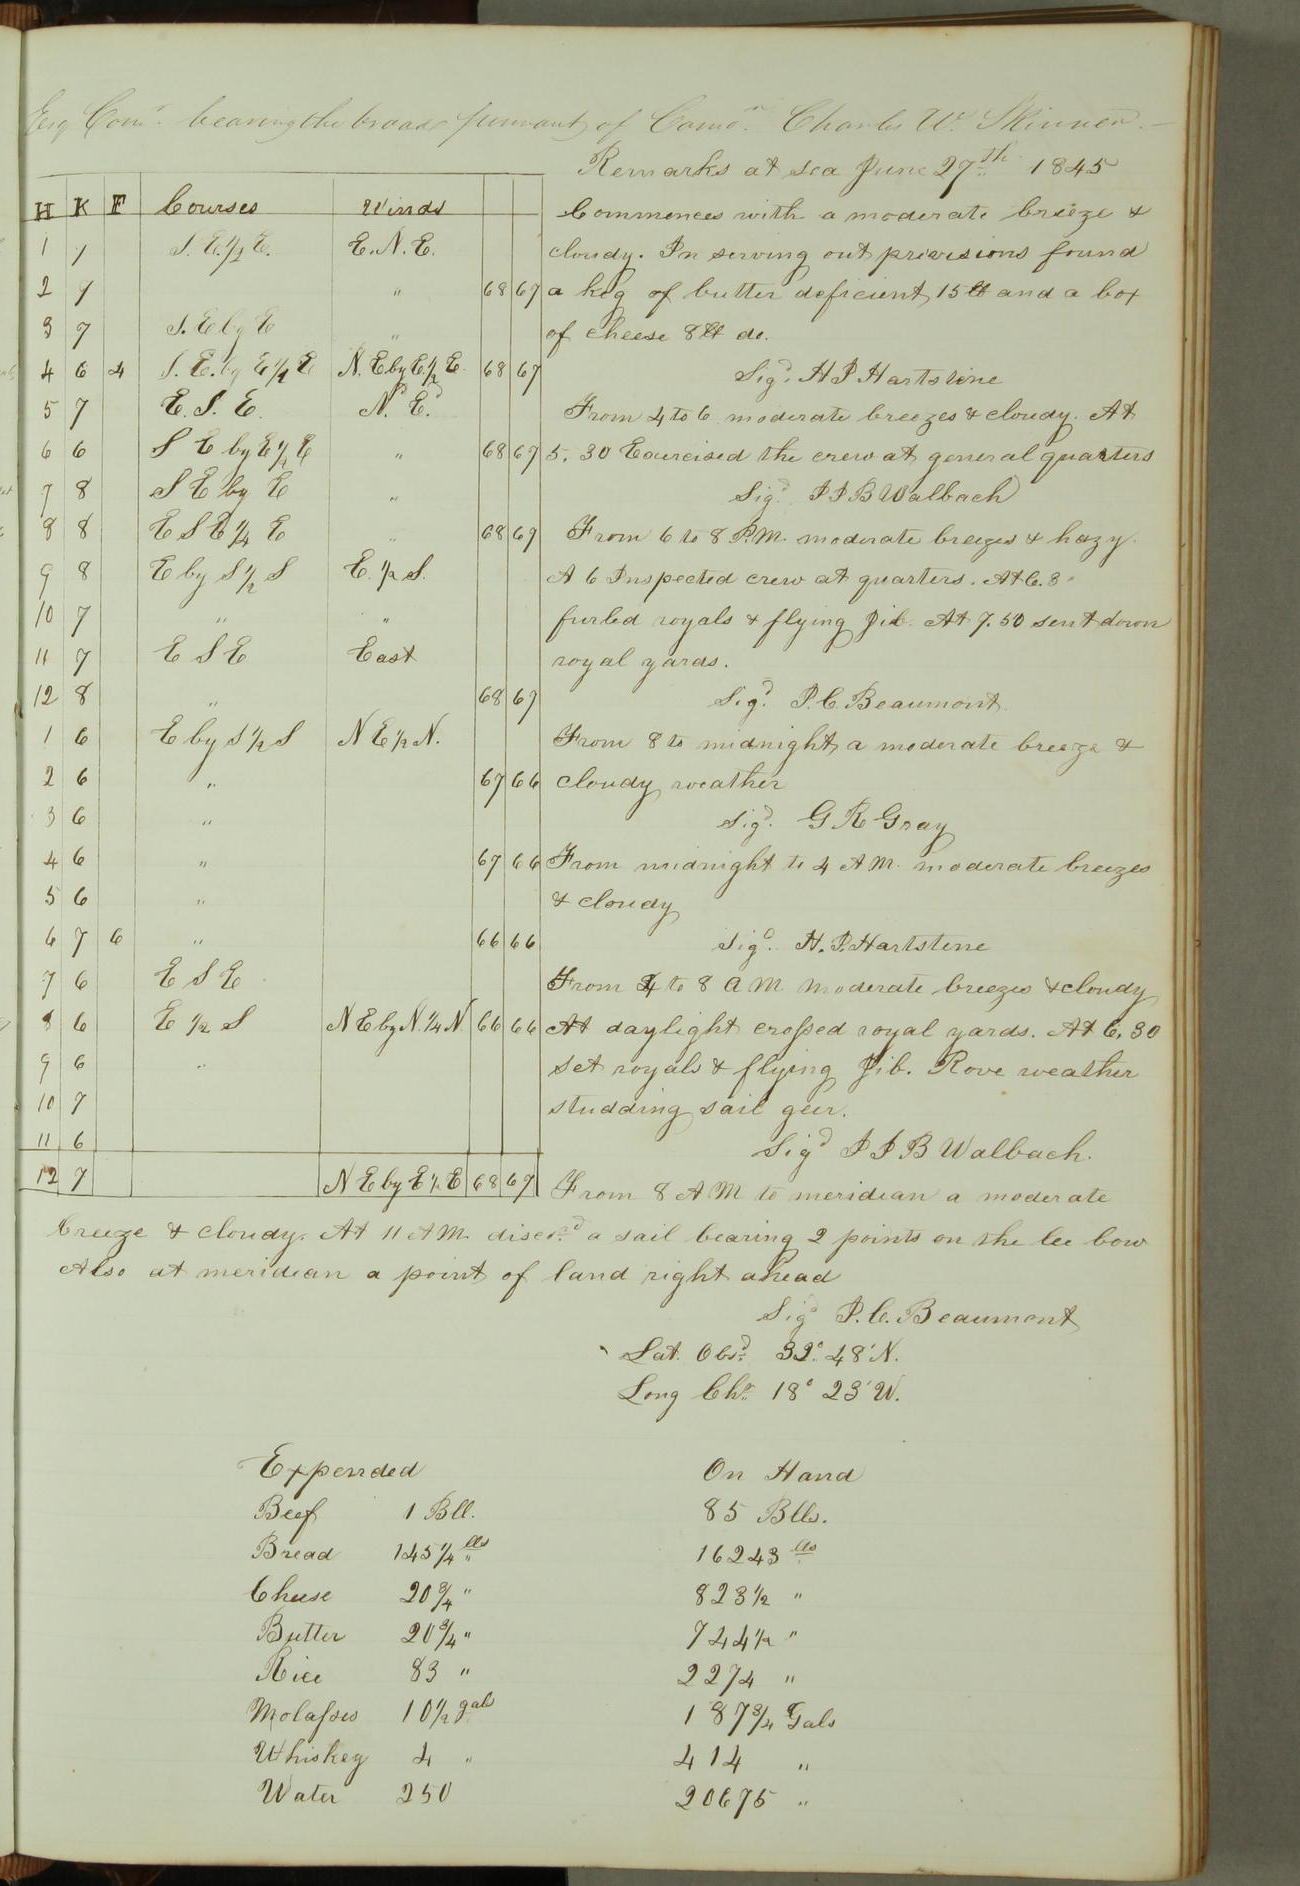 Esq Comr. bearing the broad pennant of Como. Charles W. Skinner.—
Remarks at sea June 27th 1845
H K F Courses Winds
1 7 S. E. 1/2 E. E. N. E.
2 7 " 68 67
3 7 S. E by E "
4 6 4 S. E. by E 1/2 E N. E by E 1/2 E. 68 67
5 7 E. S. E. Nd. Ed.
6 6 S E by E 1/2 E " 68 69
7 8 S E by E "
8 8 E S E 1/4 E " 68 69
9 8 E by S 1/2 S E. 1/2 S.
10 7 " "
11 7 E S E East
12 8 " 68 69
1 6 E by S 1/2 S N E 1/2 N.
2 6 " 67 66
3 6 "
4 6 " 67 66
5 6 "
6 7 6 " 66 66
7 6 E S E
8 6 E 1/2 S N E by N. 1/4 N 66 66
9 6 "
10 7
11 6
12 7 N E by E 1/2 E 68 69
Commences with a moderate breeze &
cloudy. In serving out provisions found
a keg of butter deficient 15 lb and a box
of cheese 8 lb do.
Sigd. H P Hartstene
From 4 to 6 moderate breezes & cloudy. At
5.30 Excercised the crew at general quarters
Sigd. J J B Walbach
From 6 to 8 P.M. moderate breezes & hazy.
A 6 Inspected crew at quarters. At 6.3
furled royals & flying Jib. At 7.50 sent down
royal yards.
Sigd. J. C. Beaumont
From 8 to midnight a moderate breeze &
cloudy weather
Sigd. G R Gray
From midnight to 4 A M. moderate breezes
& cloudy
Sigd. H. P. Hartstene
From 4 to 8 A M moderate breezes & cloudy
At daylight crossed royal yards. At 6.30
set royals & flying Jib. Rove weather
studding sail geer.
Sigd J J B Walbach.
From 8 A M to meridian a moderate
breeze & cloudy. At 11 A M. discod. a sail bearing 2 points on the lee bow
Also at meridian a point of land right ahead
Sigd J. C. Beaumont
Lat. Obsd. 32° 48' N.
Long Chr. 18° 23' W.
Expended On Hand
Beef 1 Bll. 85 Blls.
Bread 145 1/4 lbs 16243 lbs
Cheese 20 3/4 " 823 1/2 "
Butter 20 3/4 " 744 1/2 "
Rice 83 " 2274 "
Molasses 10 1/2 gals 187 3/4 Gals
Whiskey 4 " 414 "
Water 250 20675 "